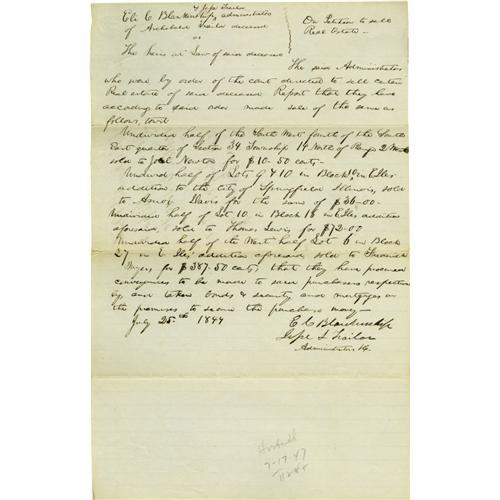 & Jesse Trailor
Eli C Blankenship, administrators
of Archibald Trailor deceased
vs
The heirs at Law of said deceased
On Petition to sell
Real Estate -
The said Administrators
who were by order of the court directed to sell certain
Real estate of said deceased Report that they have
according to said order made sale of the same as
follows, towit
Undivided half of the South West fourth of the South
East quarter of Section 34 Township 14 North of Range 2 West
sold to Joel Newton for $10-50 cents-
Undivid half of Lots 9 & 10 in Block in Elles
addition to the city of Springfield Illinois, sold
to Davis for the sum of $36-00-
Undivided half of Lot 10 in Block 18 in Elles addition
aforesaid, sold to Thomas Lewis for $72-00
Undivided half of the West half Lot 6 in Block
27 in E Iles addition aforesaid sold to Frederick
Myers for $387.50 cents, that they have promised
conveyances to be made to said purchasers respectively
by, and taken bonds & security and mortgages on
the premises to secure the purchase money -
July 25th 1844
E C Blankenship
Jesse Trailor
Administrators
7-17-47